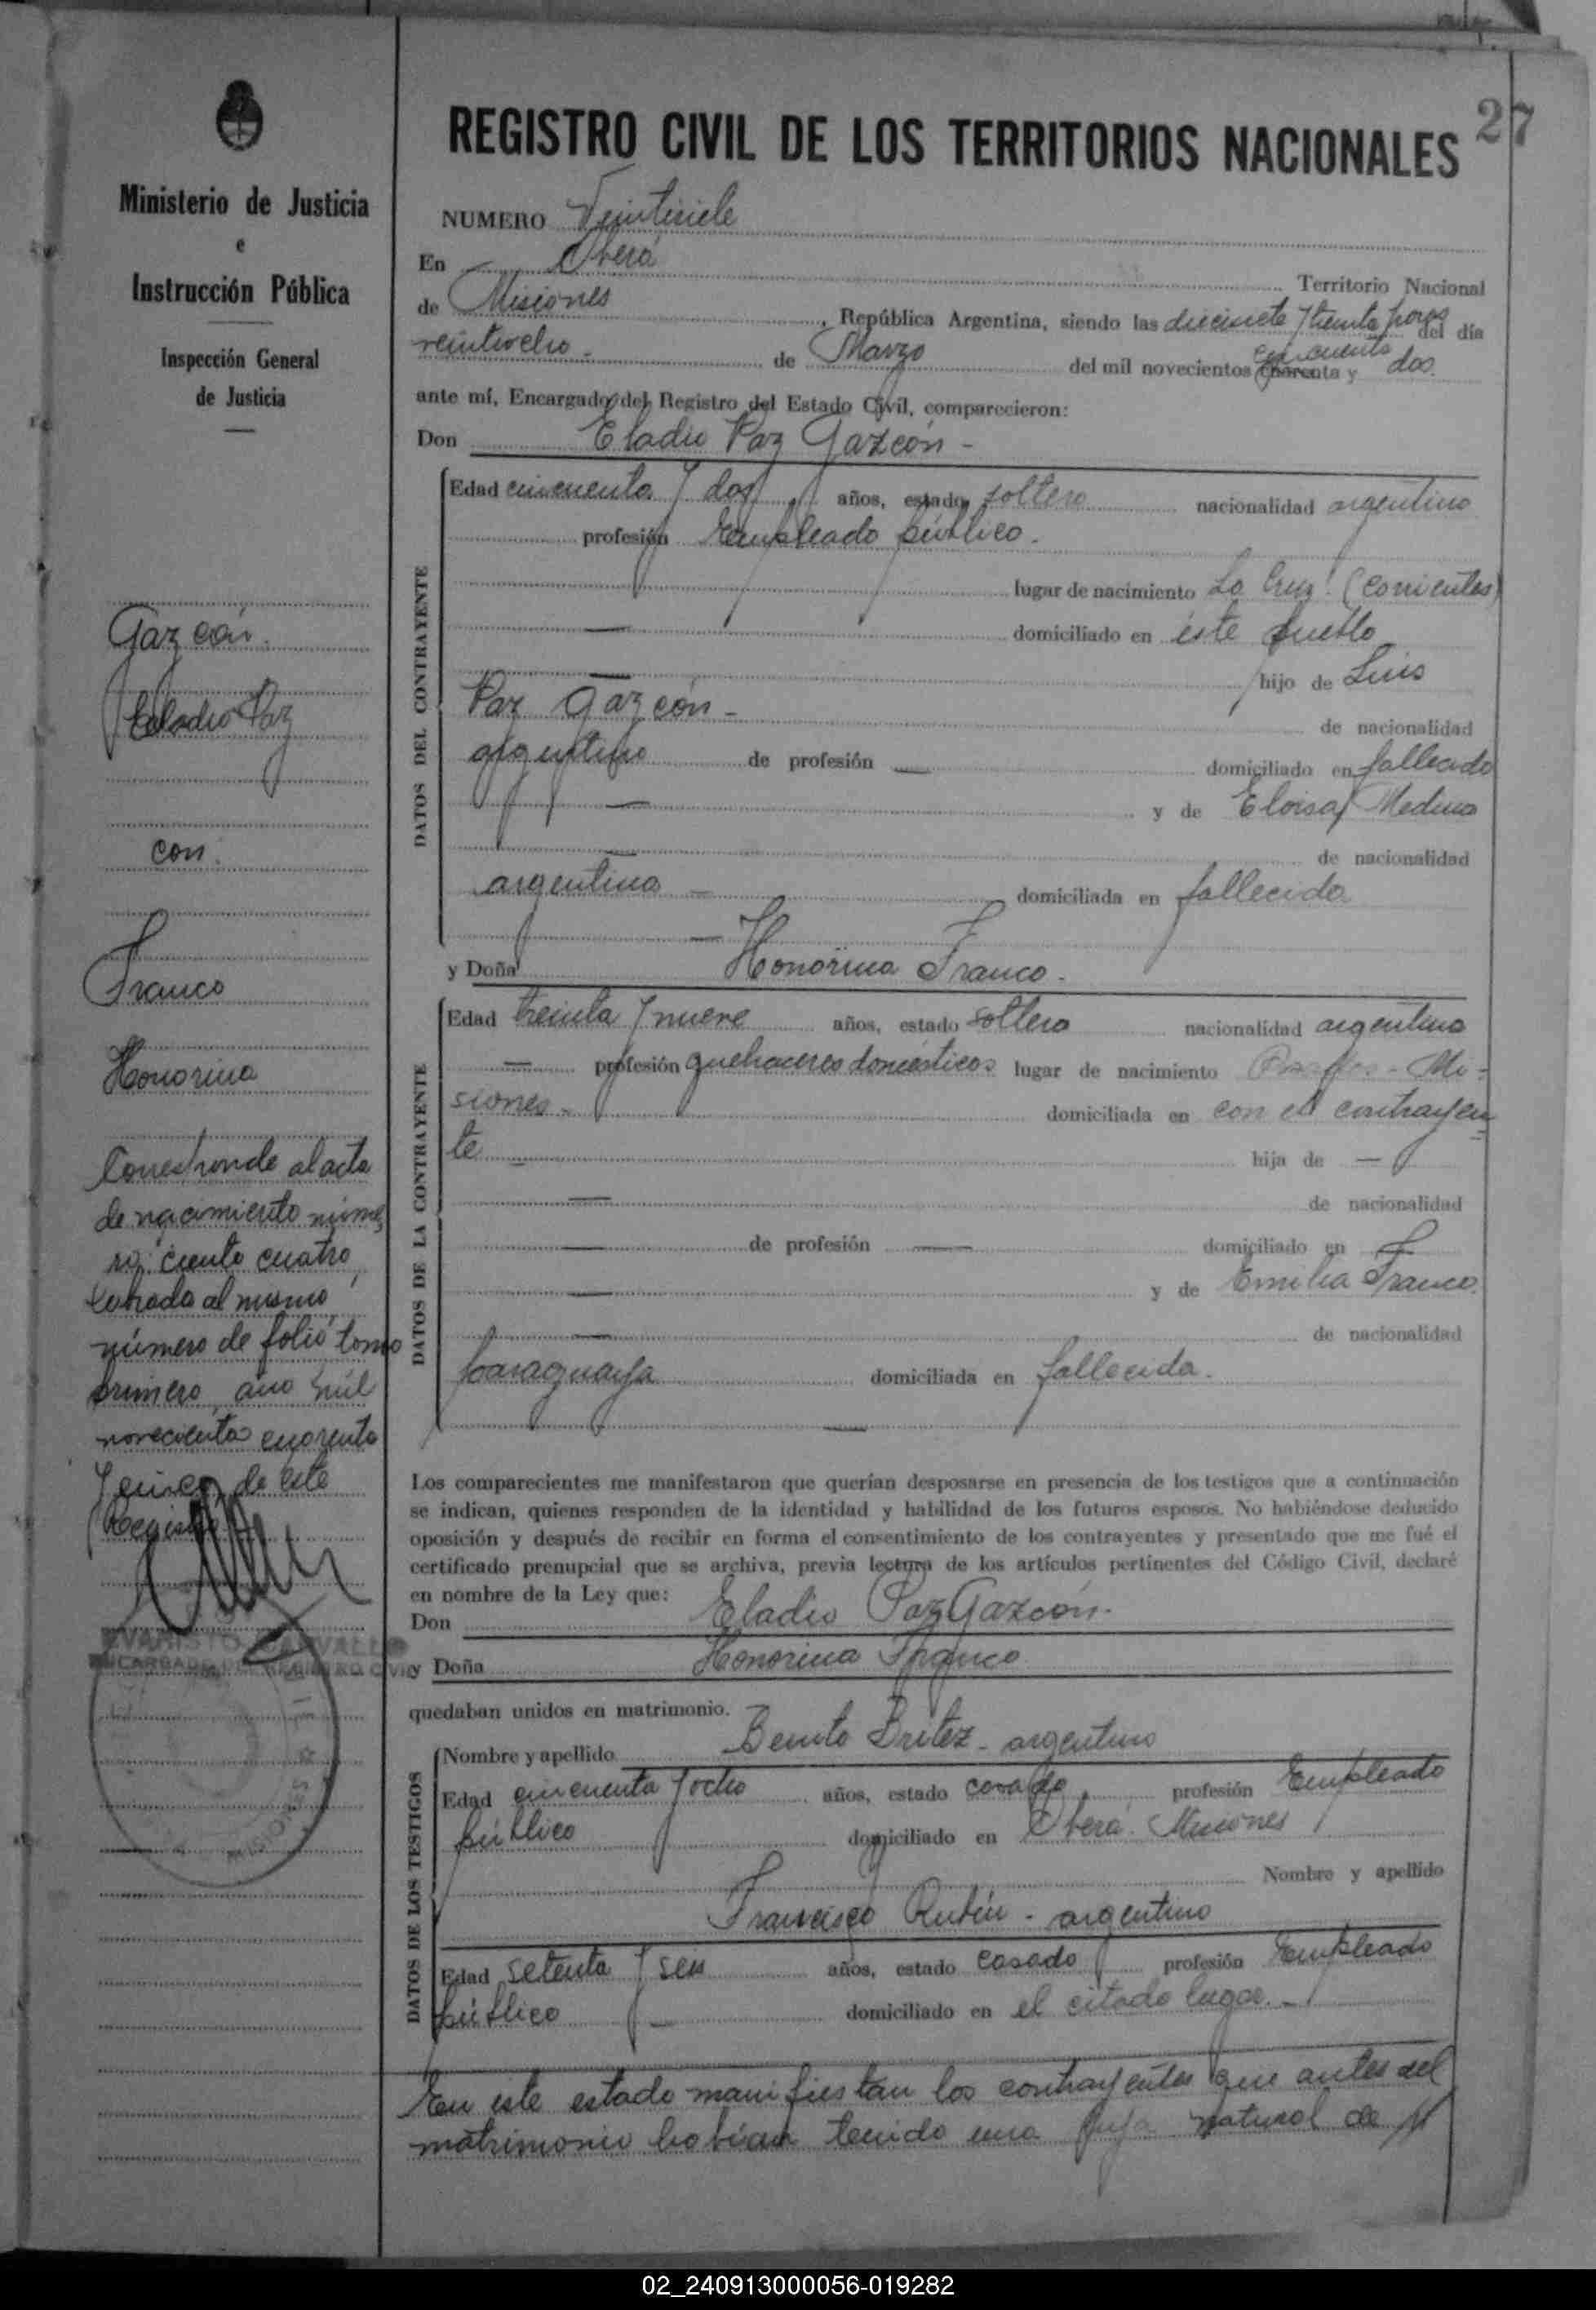 27
REGISTRO CIVIL DE LOS TERRITORIOS NACIONALES
Ministerio de Justicia
e
Instrucción Pública
Inspección General
de Justicia
NUMERO Veintisiete
En Oberá Territorio Nacional
de Misiones, República Argentina, siendo las diecisiete y treinta horas del día
veintiocho - de Marzo del mil novecientos cincuenta y dos
ante mí, Encargado del Registro del Estado Civil, comparecieron:
Don Eladio Paz Gazcón -
DATOS DEL CONTRAYENTE
Edad cincuenta y dos años, estado soltero nacionalidad argentino
profesión Empleado público.
lugar de nacimiento La Cruz (Corrientes)
— domiciliado en éste pueblo
— hijo de Luis
Paz Gazcón - de nacionalidad
argentino de profesión — domiciliado en fallecido
— y de Eloisa Medina
— de nacionalidad
argentina - domiciliada en fallecida
—
y Doña Honorina Franco -
DATOS DE LA CONTRAYENTE
Edad treinta y nueve años, estado soltera nacionalidad argentina
— profesión quehaceres domésticos lugar de nacimiento Mi-
siones - domiciliada en con el contrayen-
te - hija de —
— de nacionalidad
— de profesión — domiciliado en
— y de Emilia Franco
— de nacionalidad
paraguaya domiciliada en fallecida.
—
Los comparecientes me manifestaron que querían desposarse en presencia de los testigos que a continuación
se indican, quienes responden de la identidad y habilidad de los futuros esposos. No habiéndose deducido
oposición y después de recibir en forma el consentimiento de los contrayentes y presentado que me fué el
certificado prenupcial que se archiva, previa lectura de los artículos pertinentes del Código Civil, declaré
en nombre de la Ley que:
Don Eladio Paz Gazcón.
y Doña Honorina Franco
quedaban unidos en matrimonio.
DATOS DE LOS TESTIGOS
Nombre y apellido Benito Britez - argentino
Edad cincuenta y ocho años, estado casado profesión Empleado
público domiciliado en Oberá Misiones
Nombre y apellido
Francisco Rubín - argentino
Edad setenta y seis años, estado casado profesión Empleado
público — domiciliado en el citado lugar. -
En este estado manifiestan los contrayentes que antes del
matrimonio habían tenido una hija natural de
Gazcón.
Eladio Paz
con
Franco
Honorina
Corresponde al acta
de nacimiento núme
ro ciento cuatro
labrada al mismo
número de folio tomo
primero, año mil
novecientos cuarenta
y cinco de este
Registro
EVARISTO CARVALLO
ENCARGADO DEL REGISTRO CIVIL
MISIONES
02_240913000056-019282